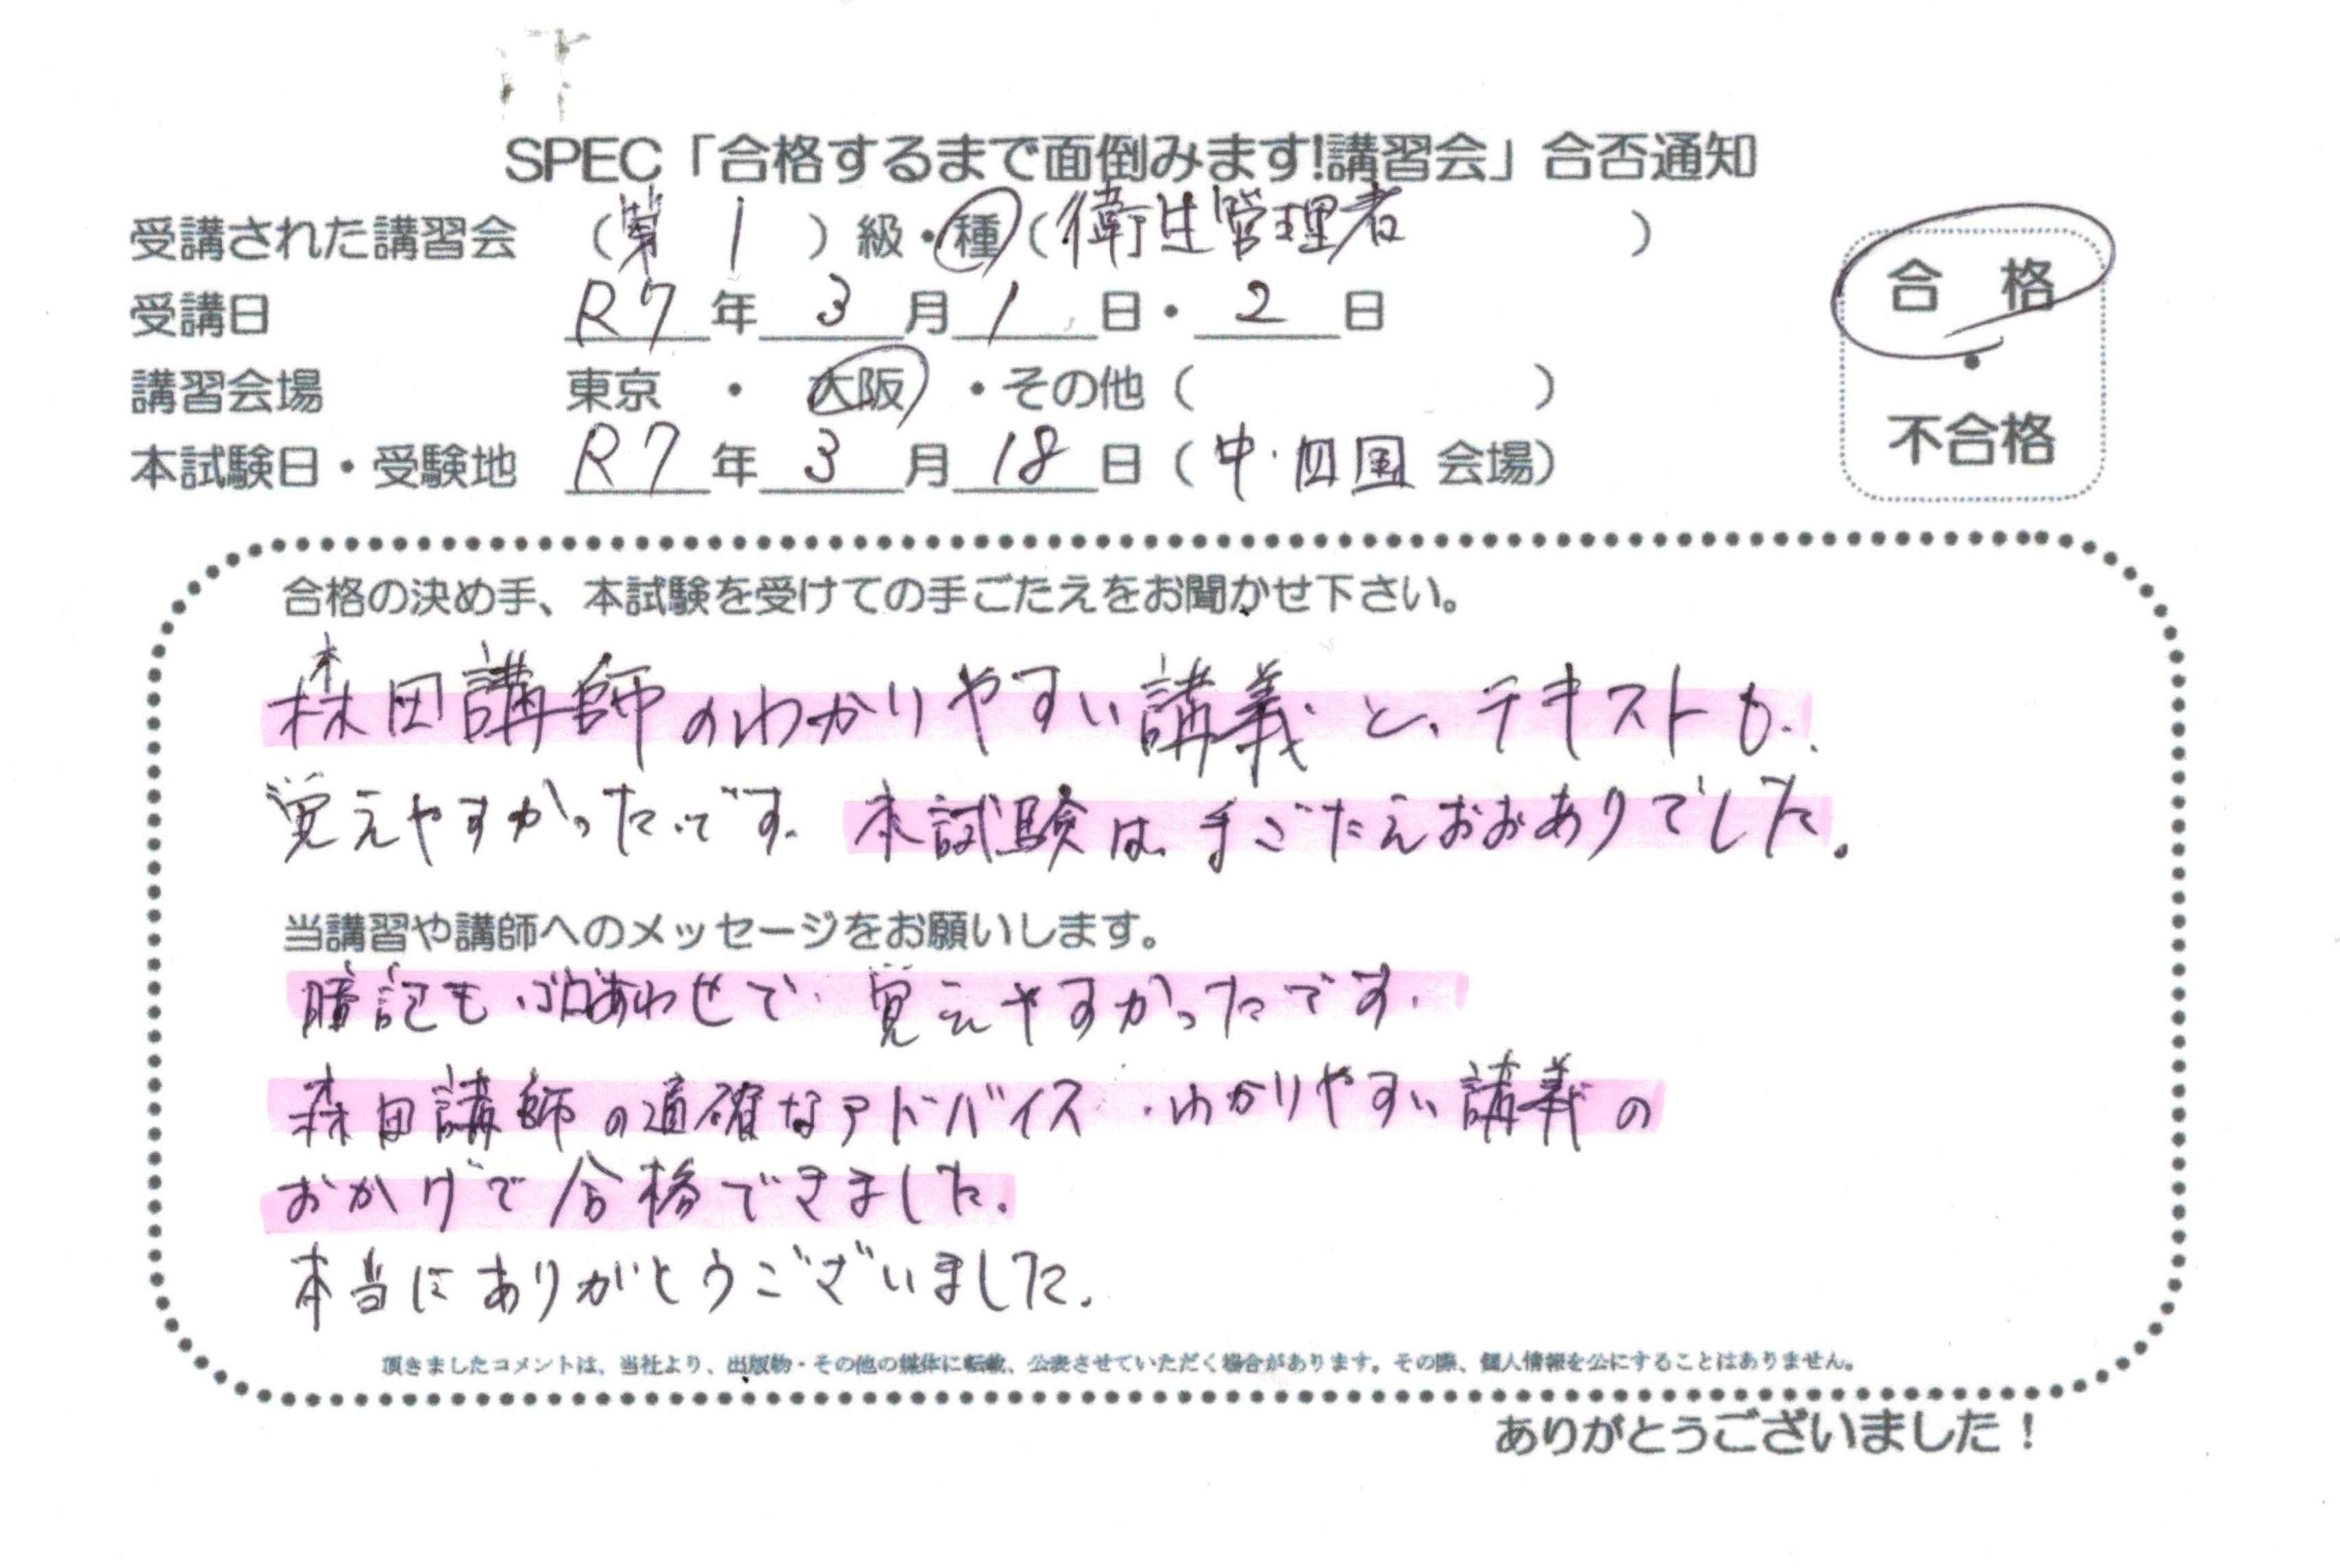 SPEC「合格するまで面倒みます!講習会」合否通知
受講された講習会 (第 1 ) 級・種 (衛生管理者 )
受講日 R7 年 3 月 1 日・ 2 日
講習会場 東京 ・ 大阪 ・その他 ( )
本試験日・受験地 R7 年 3 月 18 日 (中・四国 会場)
合 格
・
不合格
合格の決め手、本試験を受けての手ごたえをお聞かせ下さい。
森田講師のわかりやすい講義と、テキストも、
覚えやすかったです。本試験は、手ごたえおおありでした。
当講習や講師へのメッセージをお願いします。
暗記も、ゴロあわせで、覚えやすかったです。
森田講師の適確なアドバイス、わかりやすい講義の
おかげで合格できました。
本当にありがとうございました。
頂きましたコメントは、当社より、出版物・その他の媒体に転載、公表させていただく場合があります。その際、個人情報を公にすることはありません。
ありがとうございました！